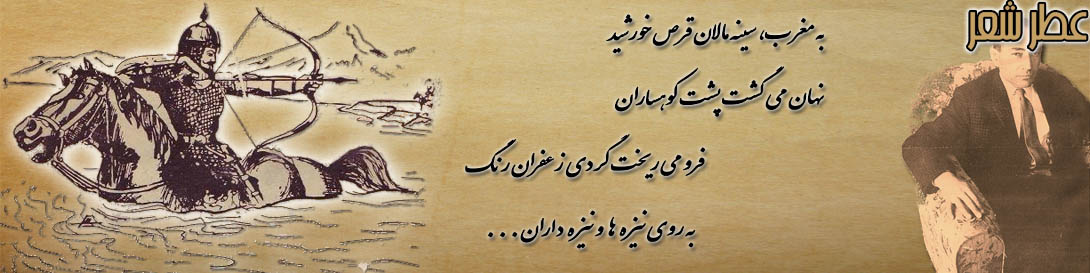 عطر شعر
به مغرب، سینه مالان قرص خورشید
نهان می گشت پشت کوهساران
فرو می ریخت گردی زعفران رنگ
به روی نیزه ها و نیزه داران...